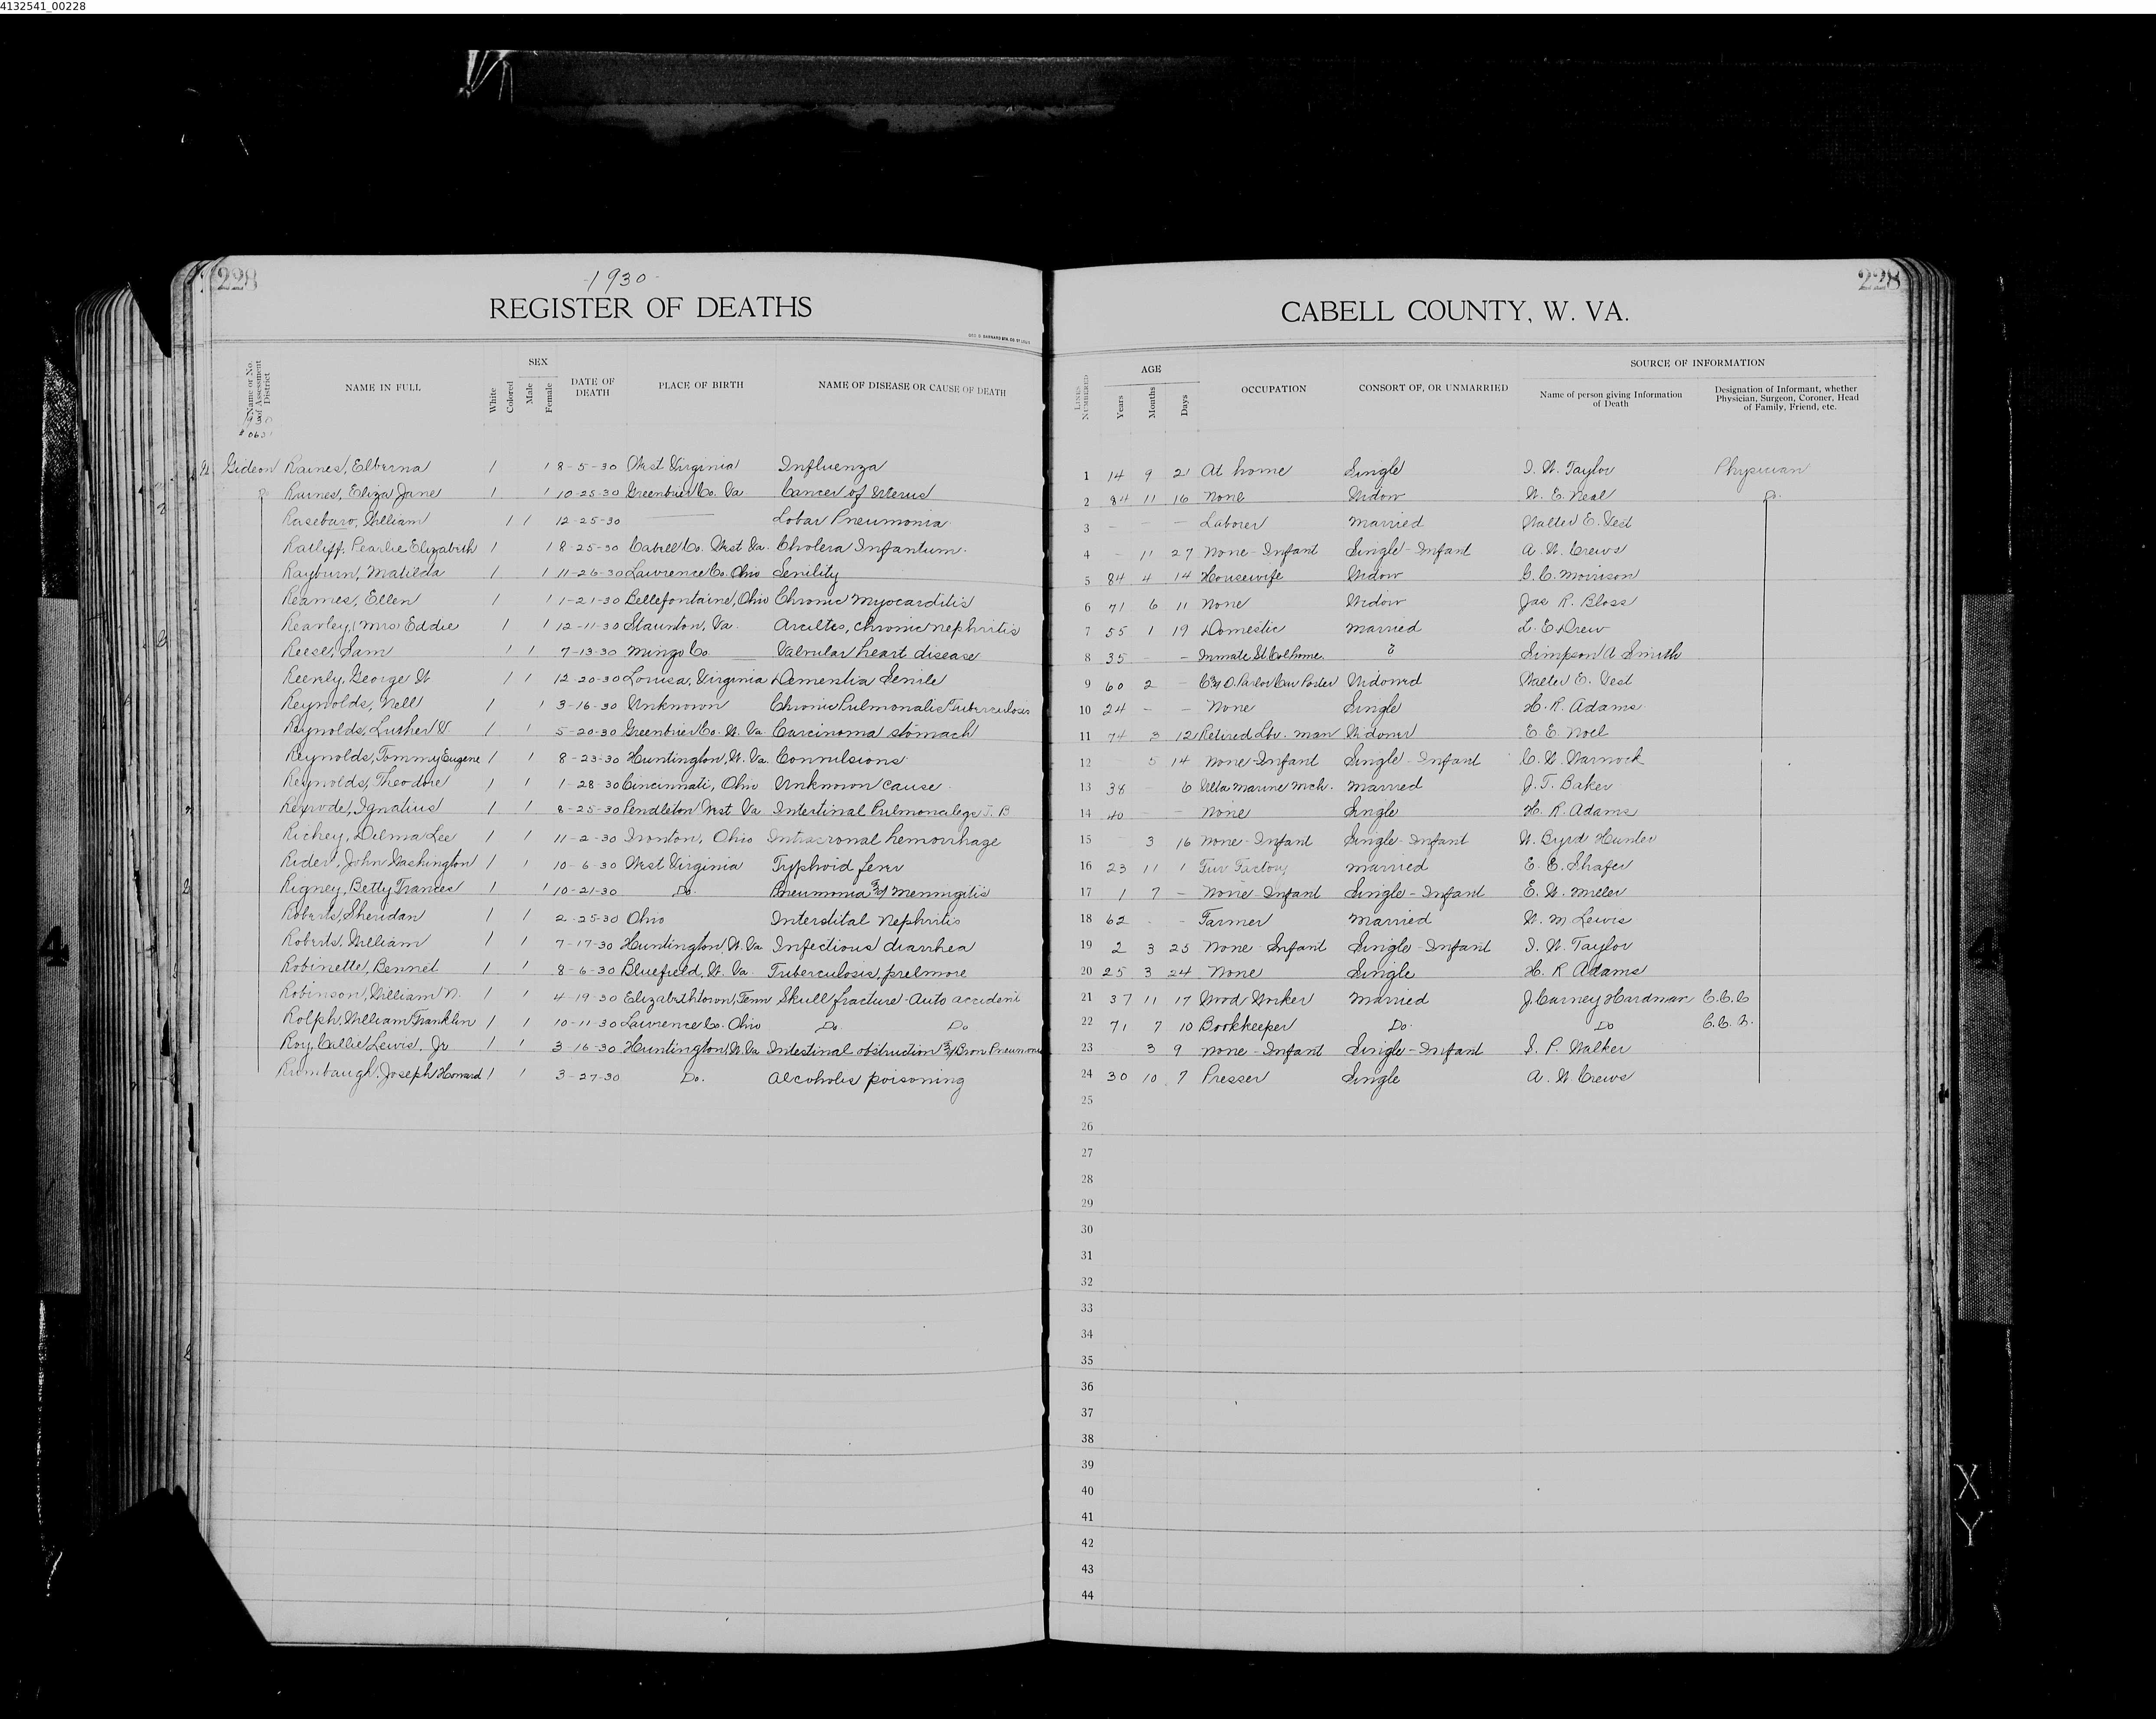 4132541_00228
228
-1930-
REGISTER OF DEATHS
CABELL COUNTY, W. VA.
228
Name or No. of Assessment District
NAME IN FULL
White
Colored
SEX
Male
Female
DATE OF DEATH
PLACE OF BIRTH
NAME OF DISEASE OR CAUSE OF DEATH
LINES NUMBERED
AGE
Years
Months
Days
OCCUPATION
CONSORT OF, OR UNMARRIED
SOURCE OF INFORMATION
Name of person giving Information of Death
Designation of Informant, whether Physician, Surgeon, Coroner, Head of Family, Friend, etc.
1930
Gideon Raines, Elberna 1 1 8-5-30 West Virginia Influenza 1 14 9 21 At home Single I. W. Taylor Physician
Do Raines, Eliza Jane 1 1 10-25-30 Greenbrier Co. Va Cancer of Uterus 2 84 11 16 None Widow W. E. Neal Do.
Raseburo, William 1 1 12-25-30 — Lobar Pneumonia 3 — — — Laborer Married Walter E. Vest
Ratliff, Pearlie Elizabeth 1 1 8-25-30 Cabell Co. West Va. Cholera Infantum. 4 - 11 27 None-Infant Single-Infant A. W. Crews
Rayburn, Matilda 1 1 11-26-30 Lawrence Co. Ohio Senility 5 84 4 14 Housewife Widow G. C. Morrison
Reames, Ellen 1 1 1-21-30 Bellefontaine, Ohio Chronic Myocarditis 6 71 6 11 None Widow Jas R. Bloss
Rearley, (Mrs) Eddie 1 1 12-11-30 Staunton, Va. chronic nephritis 7 55 1 19 Domestic Married L. E. Drew
Reese, Sam 1 1 7-13-30 Mingo Co. Valvular heart disease 8 35 - - Inmate St. Col home. ? Simpson A Smith
George W 1 1 12-20-30 Louisa, Virginia Dementia Senile 9 60 2 - C & O. Parlor Car Porter Widowed Walter E. Vest
Reynolds, Nell 1 1 3-16-30 Unknown Chronic Pulmonalis Tuberculosis 10 24 - - None Single H. R. Adams
Reynolds, Luther V. 1 1 5-20-30 Greenbrier Co. W. Va. Carcinoma stomach 11 74 3 12 Retired Lbr. man Widower E. E. Noel
Reynolds, Tommy Eugene 1 1 8-23-30 Huntington, W. Va. Convulsions 12 5 14 None-Infant Single-Infant C. W. Warnock
Reynolds, Theodore 1 1 1-28-30 Cincinnati, Ohio Unknown cause 13 38 - 6 Marine Mch. Married J. T. Baker
Rexrode, Ignatius 1 1 8-25-30 Pendleton West Va Intestinal T. B 14 40 - - None Single H. R. Adams
Richey, Delma Lee 1 1 11-2-30 Ironton, Ohio Intracronal hemorrhage 15 3 16 None-Infant Single-Infant W. Byrd Hunter
Rider, John Washington 1 1 10-6-30 West Virginia Tryphoid fever 16 23 11 1 Factory Married E. E. Shafer
Rigney, Betty Frances 1 1 10-21-30 Do. Pneumonia & Meningitis 17 1 7 - None-Infant Single-Infant E. W. Miller
Roberts, Sheridan 1 1 2-25-30 Ohio Interstital Nephritis 18 62 - - Farmer Married W. M. Lewis
Roberts, William 1 1 7-17-30 Huntington, W. Va Infectious diarrhea 19 2 3 25 None-Infant Single-Infant I. W. Taylor
Robinette, Bennet 1 1 8-6-30 Bluefield, W. Va. Tuberculosis, 20 25 3 24 None Single H. R Adams
Robinson, William N. 1 1 4-19-30 Elizabethtown, Tenn Skull fracture-Auto accident 21 37 11 17 Wood Worker Married J. Carney Hardman C.C.C
Rolph, William Franklin 1 1 10-11-30 Lawrence Co. Ohio Do. Do 22 71 7 10 Bookkeeper Do. Do C.C.
Roy, Callie Lewis, Jr 1 1 3-16-30 Huntington, W. Va Intestinal obstruction & Bron Pneumonia 23 3 9 None-Infant Single-Infant S. P. Walker
Rumbaugh, Joseph Howard 1 1 3-27-30 Do. Alcoholis poisoning 24 30 10 7 Presser Single A. W. Crews
25
26
27
28
29
30
31
32
33
34
35
36
37
38
39
40
41
42
43
44
4
4
X
Y